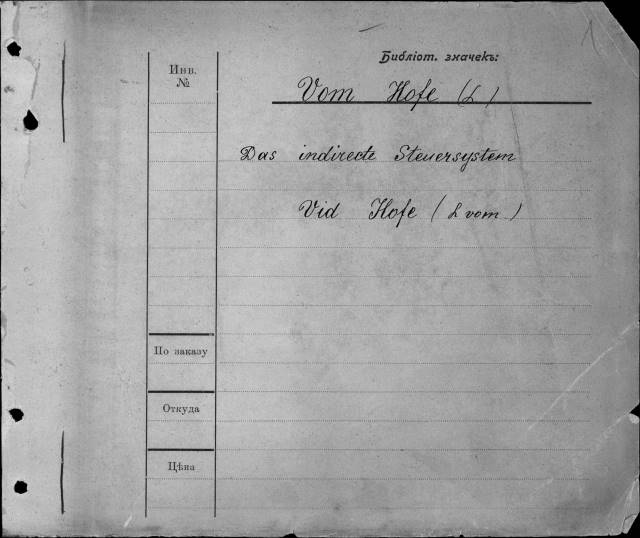 Библіот. значекъ:
1
Инв.
№
Vom Hofe (L)
Das indirecte Steuersystem
Vid Hofe (L vom)
По заказу
Откуда
Цѣна